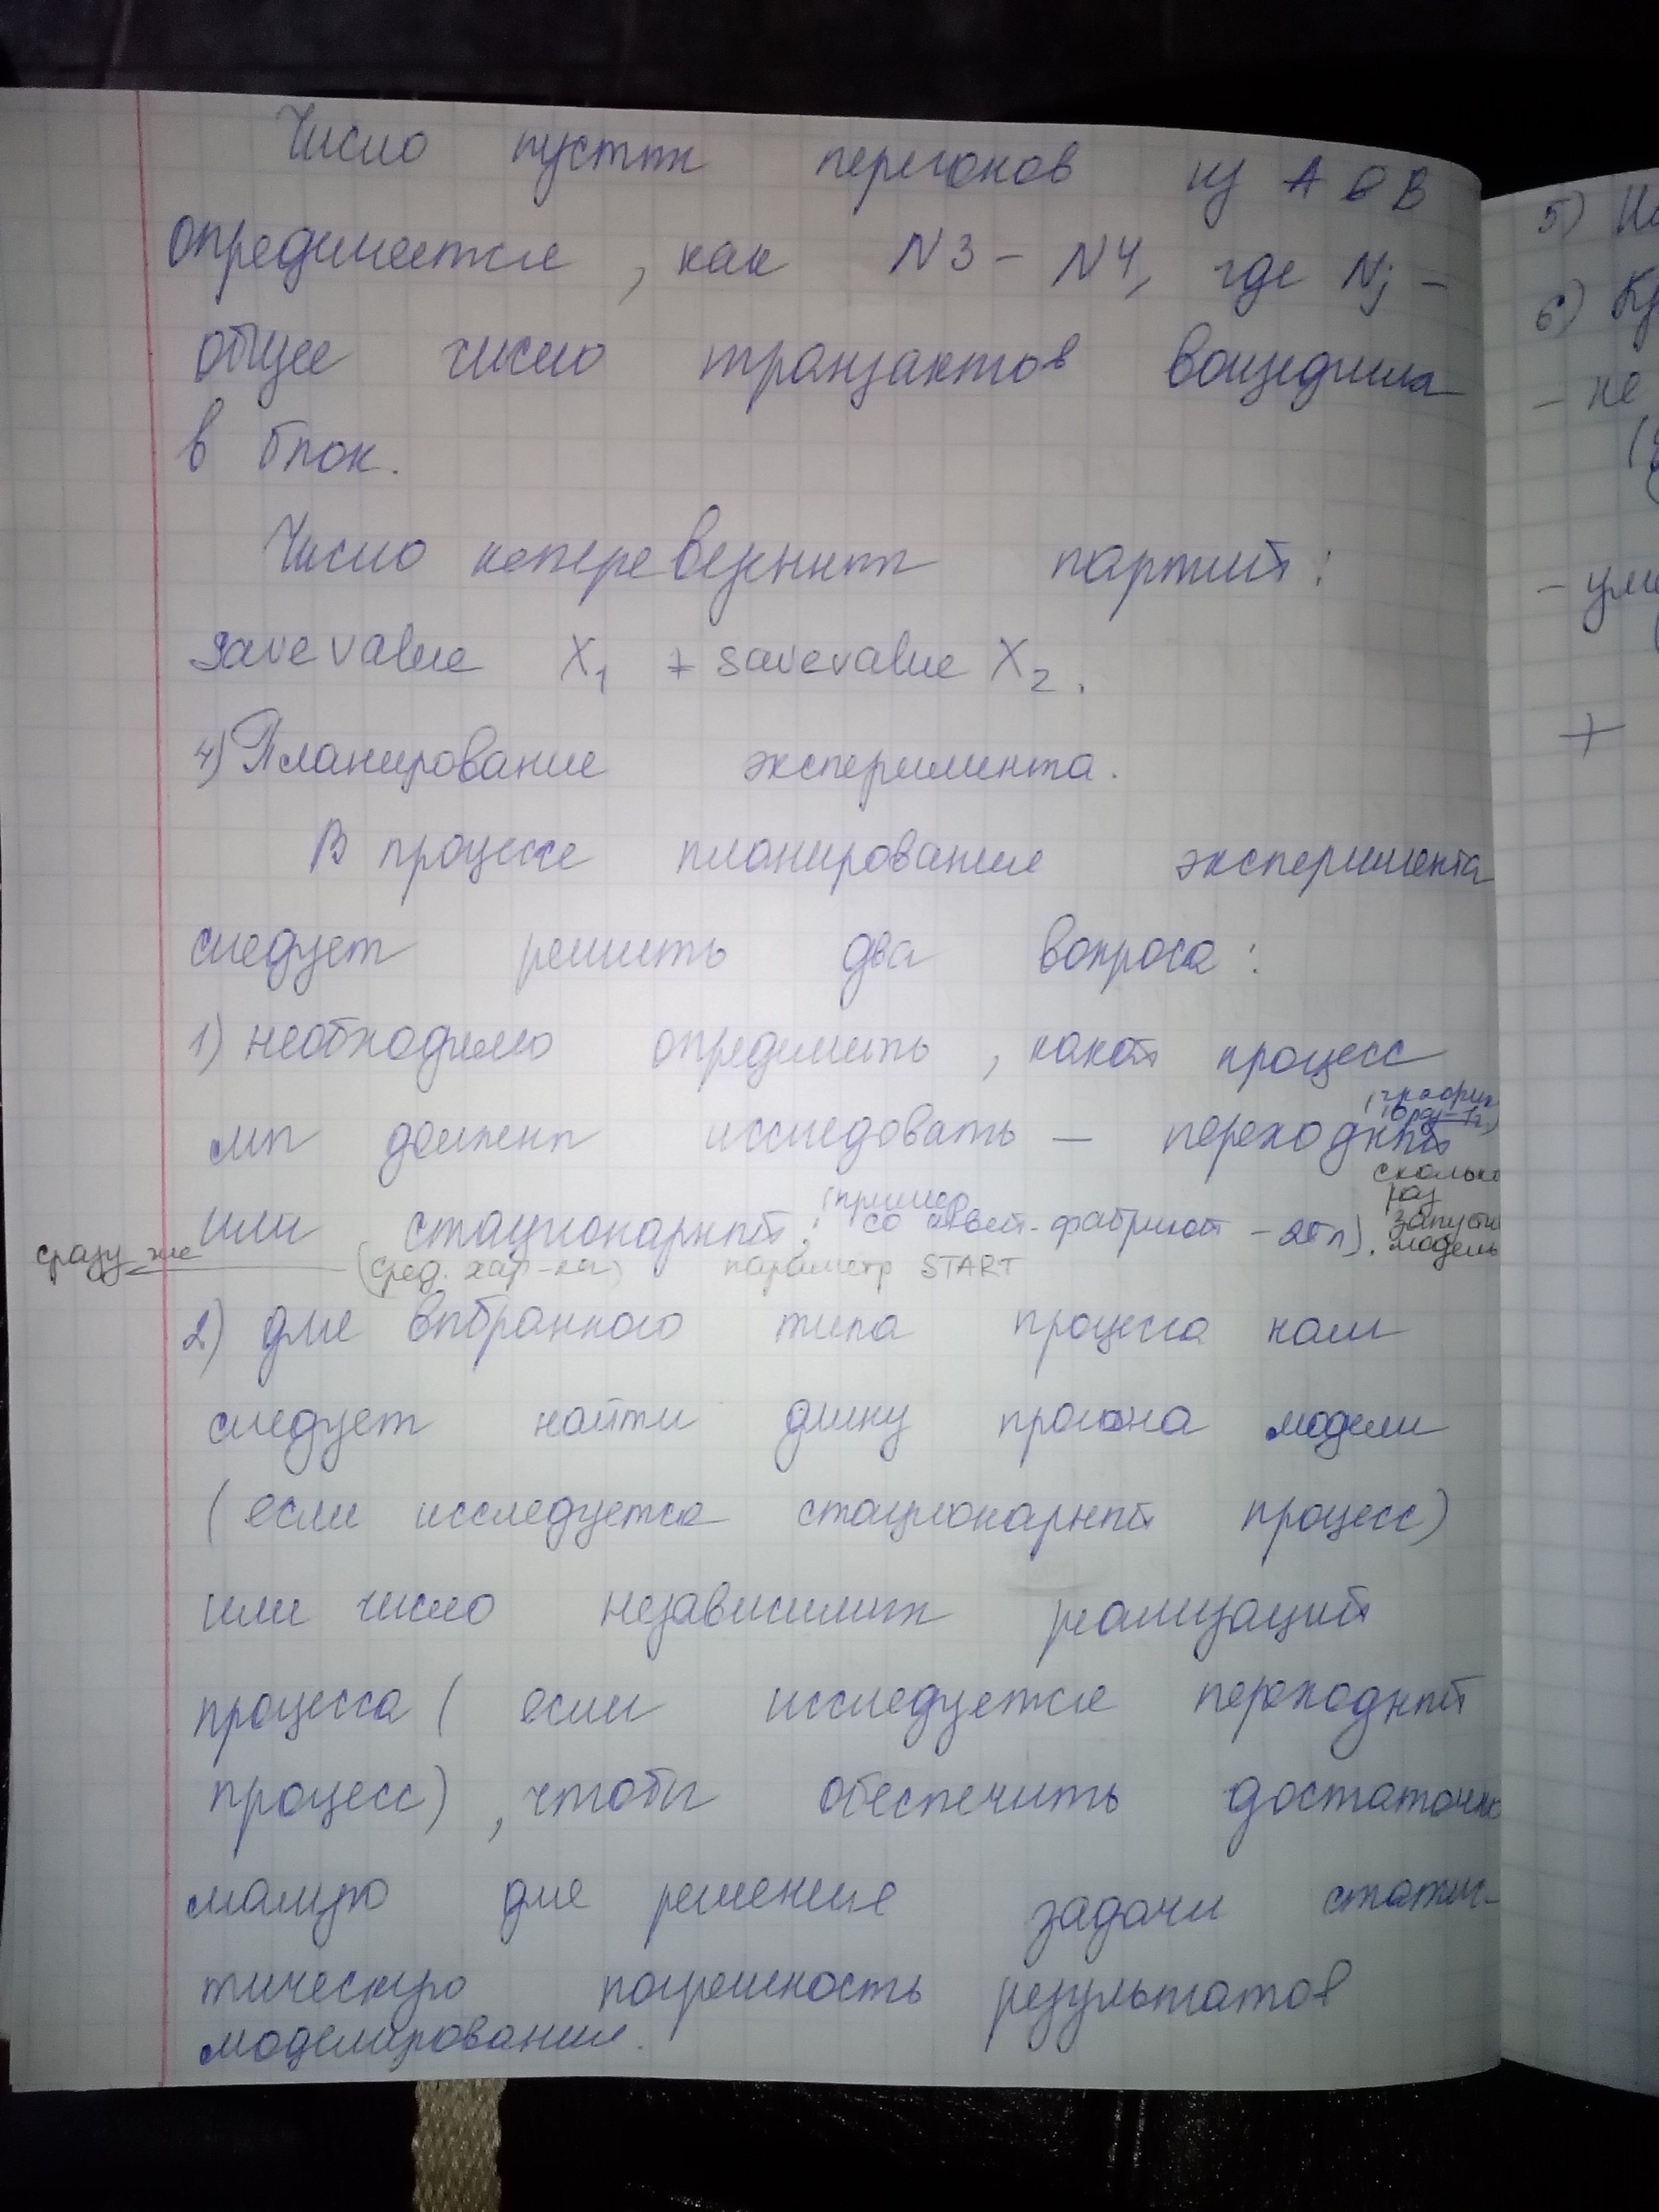 Число пустых перегонов из А в В
определяется, как N3 - N4, где Nj -
общее число транзактов вошедших
в блок.
Число неперевезенных партий:
savevalue X1 + savevalue X2.
4) Планирование эксперимента.
В процессе планирования эксперимента
следует решить два вопроса:
1) необходимо определить, какой процесс
мы должны исследовать - переходный
(график
или стационарный: (пример со швей. фабрикой - 2ой).
сколько
раз
запусти
модель
сразу же (сред. хар-ки) параметр START
2) для выбранного типа процесса нам
следует найти длину прогона модели
(если исследуется стационарный процесс)
или число независимых реализаций
процесса (если исследуется переходный
процесс), чтобы обеспечить достаточно
малую для решения задачи статис-
тическую погрешность результатов
моделирования.
5)
6)
- не
+